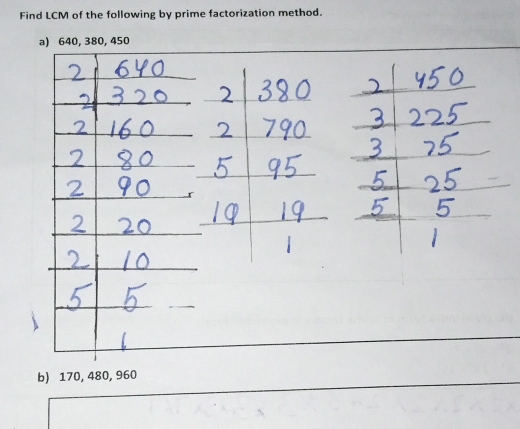 Find LCM of the following by prime factorization method.
a) 640, 380, 450
2 640
2 320
2 160
2 80
2 90
2 20
2 10
5 5
1
2 380
2 790
5 95
19 19
1
2 450
3 225
3 75
5 25
5 5
1
b) 170, 480, 960